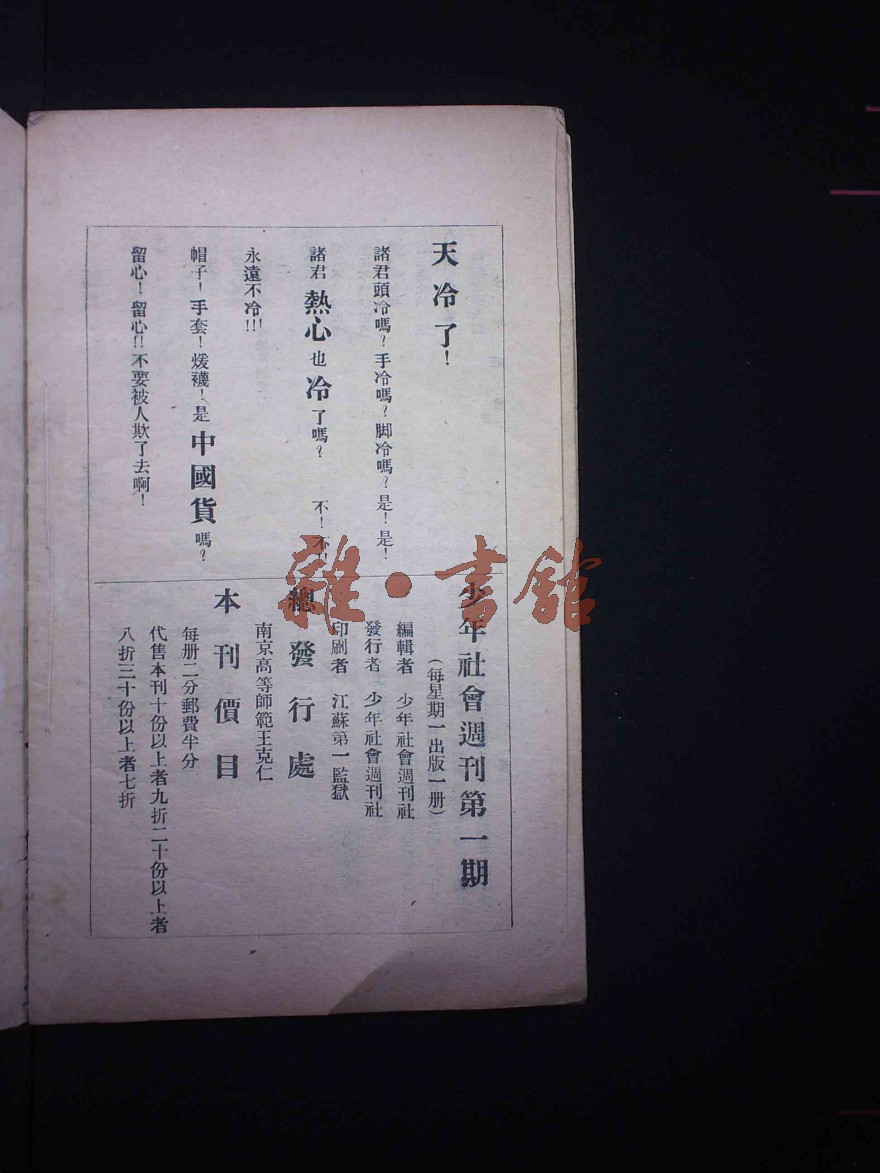 天冷了！
諸君頭冷嗎？手冷嗎？脚冷嗎？是！是！
諸君熱心也冷了嗎？　不！不！！
永遠不冷!!!
帽子！手套！煖襪！是中國貨嗎？
留心！留心!!不要被人欺了去啊！
少年社會週刊第一期
（每星期一出版一册）
編輯者　少年社會週刊社
發行者　少年社會週刊社
印刷者　江蘇第一監獄
總發行處
南京高等師範王克仁
本刊價目
每册二分郵費半分
代售本刊十份以上者九折二十份以上者
八折三十份以上者七折
雜·書館